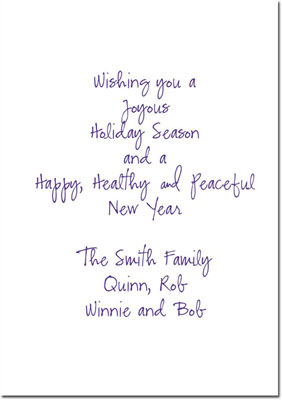 Wishing you a
Joyous
Holiday Season
and a
Happy, Healthy and Peaceful
New Year
The Smith Family
Quinn, Rob
Winnie and Bob